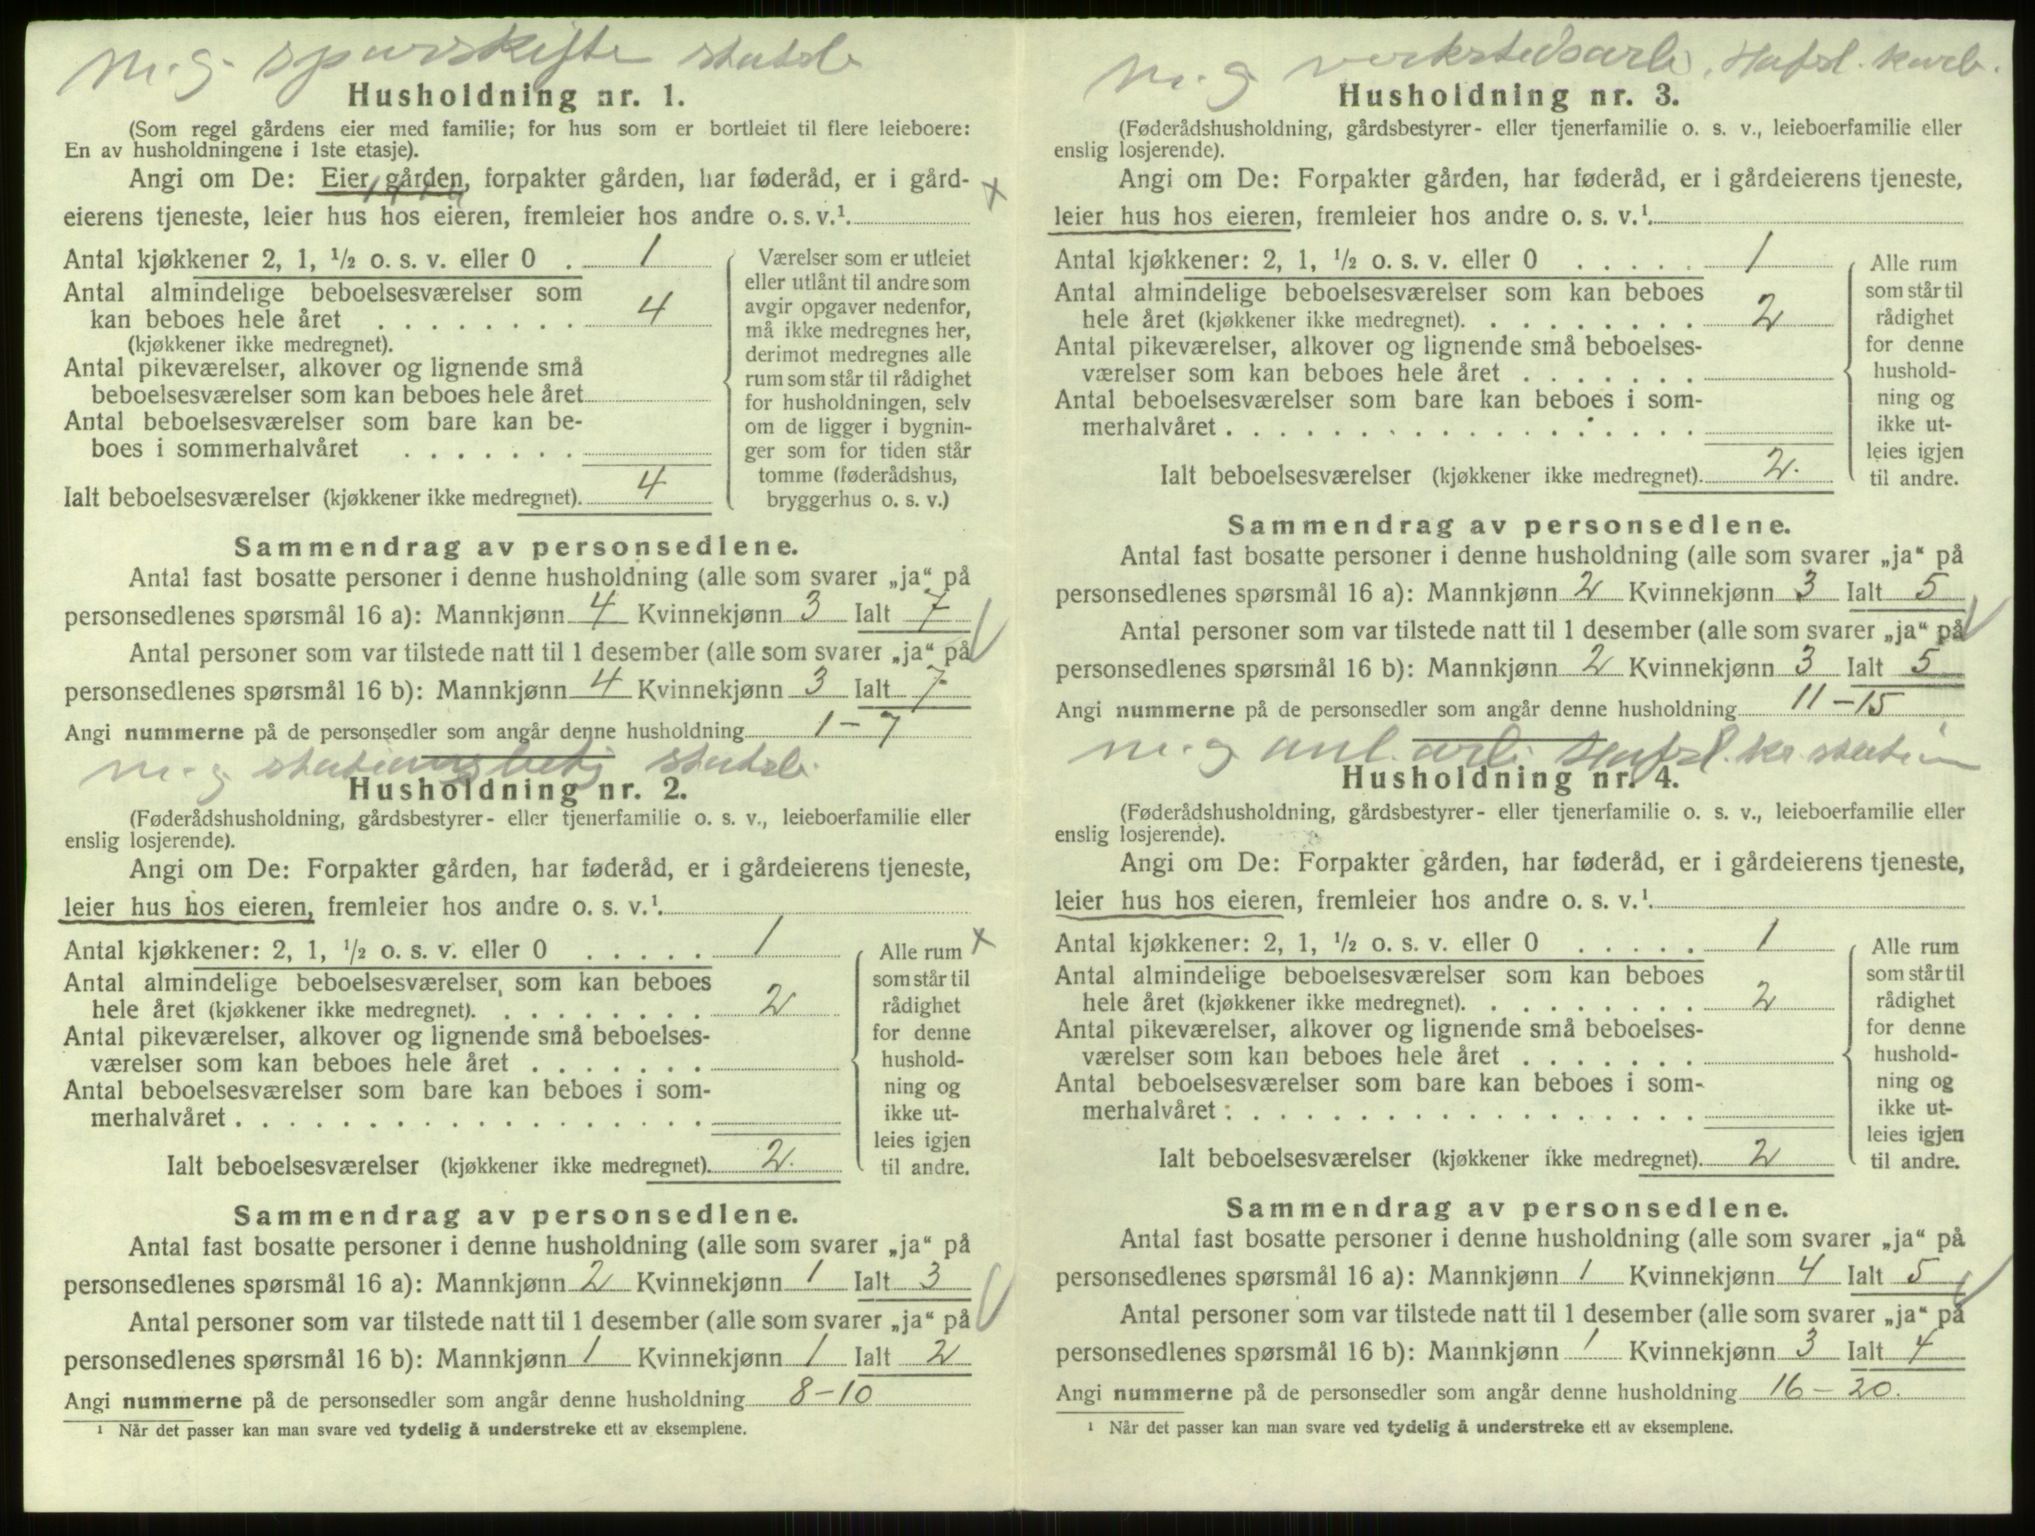 m. g. sporskifte statsb.
Husholdning nr. 1.
(Som regel gårdens eier med familie; for hus som er bortleiet til flere leieboere:
En av husholdningene i 1ste etasje).
Angi om De: Eier gården, forpakter gården, har føderåd, er i gård-
eierens tjeneste, leier hus hos eieren, fremleier hos andre o. s. v.¹
Antal kjøkkener 2, 1, ½ o. s. v. eller 0 . 1
Antal almindelige beboelsesværelser som
kan beboes hele året . . . . . . . . 4
(kjøkkener ikke medregnet).
Antal pikeværelser, alkover og lignende små
beboelsesværelser som kan beboes hele året
Antal beboelsesværelser som bare kan be-
boes i sommerhalvåret . . . . . . .
Ialt beboelsesværelser (kjøkkener ikke medregnet). 4
Værelser som er utleiet
eller utlånt til andre som
avgir opgaver nedenfor,
må ikke medregnes her,
derimot medregnes alle
rum som står til rådighet
for husholdningen, selv
om de ligger i bygnin-
ger som for tiden står
tomme (føderådshus,
bryggerhus o. s. v.)
Sammendrag av personsedlene.
Antal fast bosatte personer i denne husholdning (alle som svarer „ja“ på
personsedlenes spørsmål 16 a): Mannkjønn 4 Kvinnekjønn 3 Ialt 7
Antal personer som var tilstede natt til 1 desember (alle som svarer „ja“ på
personsedlenes spørsmål 16 b): Mannkjønn 4 Kvinnekjønn 3 Ialt 7
Angi nummerne på de personsedler som angår denne husholdning 1 – 7
m. g. stationsbetj statsb.
Husholdning nr. 2.
(Føderådshusholdning, gårdsbestyrer- eller tjenerfamilie o. s. v., leieboerfamilie eller
enslig losjerende).
Angi om De: Forpakter gården, har føderåd, er i gårdeierens tjeneste,
leier hus hos eieren, fremleier hos andre o. s. v.¹
Antal kjøkkener: 2, 1, ½ o. s. v. eller 0 . . . . . 1
Antal almindelige beboelsesværelser, som kan beboes
hele året (kjøkkener ikke medregnet). . . . . . . . . 2
Antal pikeværelser, alkover og lignende små beboelses-
værelser som kan beboes hele året . . . . . . .
Antal beboelsesværelser som bare kan beboes i som-
merhalvåret . . . . . . . . . . . . . . . . . .
Ialt beboelsesværelser (kjøkkener ikke medregnet). 2.
Alle rum
som står til
rådighet
for denne
hushold-
ning og
ikke ut-
leies igjen
til andre.
Sammendrag av personsedlene.
Antal fast bosatte personer i denne husholdning (alle som svarer „ja“ på
personsedlenes spørsmål 16 a): Mannkjønn 2 Kvinnekjønn 1 Ialt 3
Antal personer som var tilstede natt til 1 desember (alle som svarer „ja“ på
personsedlenes spørsmål 16 b): Mannkjønn 1 Kvinnekjønn 1 Ialt 2
Angi nummerne på de personsedler som angår denne husholdning 8–10
¹ Når det passer kan man svare ved tydelig å understreke ett av eksemplene.
m. g verkstedsarb. Hafsl. karb.
Husholdning nr. 3.
(Føderådshusholdning, gårdsbestyrer- eller tjenerfamilie o. s. v., leieboerfamilie eller
enslig losjerende).
Angi om De: Forpakter gården, har føderåd, er i gårdeierens tjeneste,
leier hus hos eieren, fremleier hos andre o. s. v.¹
Antal kjøkkener: 2, 1, ½ o. s. v. eller 0 . . . . . 1
Antal almindelige beboelsesværelser som kan beboes
hele året (kjøkkener ikke medregnet). . . . . . . . . 2
Antal pikeværelser, alkover og lignende små beboelses-
værelser som kan beboes hele året . . . . . . .
Antal beboelsesværelser som bare kan beboes i som-
merhalvåret . . . . . . . . . . . . . . . . . .
Ialt beboelsesværelser (kjøkkener ikke medregnet). 2.
Alle rum
som står til
rådighet
for denne
hushold-
ning og
ikke ut-
leies igjen
til andre.
Sammendrag av personsedlene.
Antal fast bosatte personer i denne husholdning (alle som svarer „ja“ på
personsedlenes spørsmål 16 a): Mannkjønn 2 Kvinnekjønn 3 Ialt 5
Antal personer som var tilstede natt til 1 desember (alle som svarer „ja“ på
personsedlenes spørsmål 16 b): Mannkjønn 2 Kvinnekjønn 3 Ialt 5
Angi nummerne på de personsedler som angår denne husholdning 11 – 15
m. g anl. arb. Hafsl. station
Husholdning nr. 4.
(Føderådshusholdning, gårdsbestyrer- eller tjenerfamilie o. s. v., leieboerfamilie eller
enslig losjerende).
Angi om De: Forpakter gården, har føderåd, er i gårdeierens tjeneste,
leier hus hos eieren, fremleier hos andre o. s. v.¹
Antal kjøkkener: 2, 1, ½ o. s. v. eller 0 . . . . . 1
Antal almindelige beboelsesværelser som kan beboes
hele året (kjøkkener ikke medregnet). . . . . . . . . 2
Antal pikeværelser, alkover og lignende små beboelses-
værelser som kan beboes hele året . . . . . . .
Antal beboelsesværelser som bare kan beboes i som-
merhalvåret . . . . . . . . . . . . . . . . . .
Ialt beboelsesværelser (kjøkkener ikke medregnet). 2
Alle rum
som står til
rådighet
for denne
hushold-
ning og
ikke ut-
leies igjen
til andre.
Sammendrag av personsedlene.
Antal fast bosatte personer i denne husholdning (alle som svarer „ja“ på
personsedlenes spørsmål 16 a): Mannkjønn 1 Kvinnekjønn 4 Ialt 5
Antal personer som var tilstede natt til 1 desember (alle som svarer „ja“ på
personsedlenes spørsmål 16 b): Mannkjønn 1 Kvinnekjønn 3 Ialt 4
Angi nummerne på de personsedler som angår denne husholdning 16 – 20.
¹ Når det passer kan man svare ved tydelig å understreke ett av eksemplene.